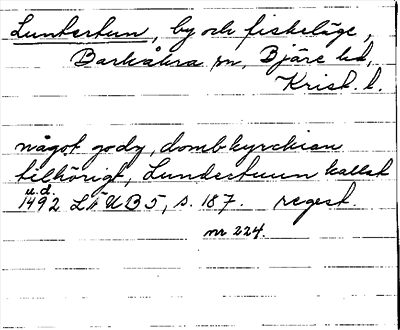 Luntertun, by och fiskeläge,
Barkåkra sn, Bjäre hd,
Krist. l.
något godz, dombkyrckian
tilhörigt, Lundertuun kallat
u.d.
1492 LÄUB 5, s. 187. regest.
nr 224.